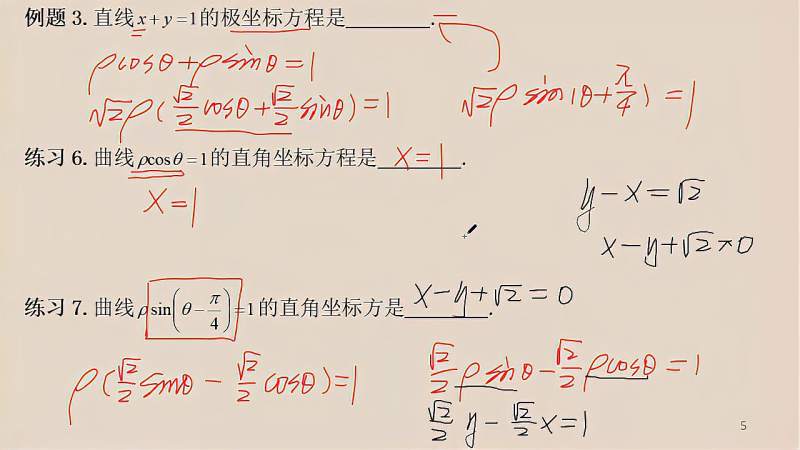 例题 3. 直线 x + y = 1 的极坐标方程是________.
ρcosθ + ρsinθ = 1
√2ρ(√2/2 cosθ + √2/2 sinθ) = 1
√2ρ sin(θ + π/4) = 1
练习 6. 曲线 ρcosθ = 1 的直角坐标方程是 x = 1.
x = 1
y - x = √2
x - y + √2 = 0
练习 7. 曲线 ρsin(θ - π/4) = 1 的直角坐标方是 x - y + √2 = 0.
ρ(√2/2 sinθ - √2/2 cosθ) = 1
√2/2 ρsinθ - √2/2 ρcosθ = 1
√2/2 y - √2/2 x = 1
5